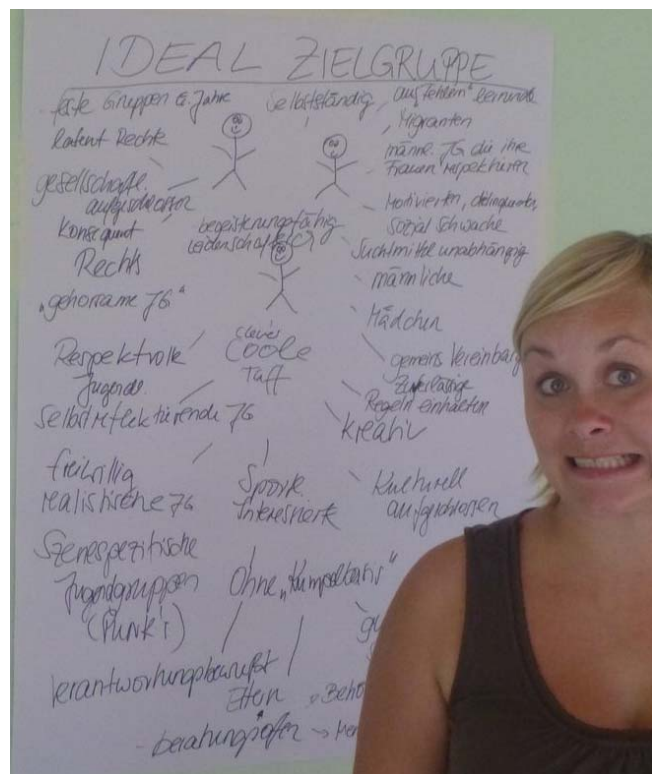 IDEAL ZIELGRUPPE
feste Gruppen 6. Jahre
latent Rechte
gesellschaftl.
aufgeschlossen
Konsequent
Rechts
"gehorsame JG"
Respektvolle
Jugendl.
Selbstreflektierende JG
freiwillig
realistische JG
Szenespezifische
Jugendgruppen
(Punk's)
verantwortungsbewußt
begeisterungsfähig
leidenschaftl(c)
clever
Coole
Taff
Sport
Interessierte
Ohne "Kumpelbasis"
Eltern
- beratungsoffen
Selbstständig
"aus Fehlern" lernende
Migranten
männl. JG die ihre
Frauen respektieren
Motivierten, delinquenten,
sozial Schwache
Suchtmittel unabhängig
männliche
Mädchen
gemeins. Vereinbar
Zuverlässige
Regeln einhalten
Kreativ
Kulturell
aufgeschlossen